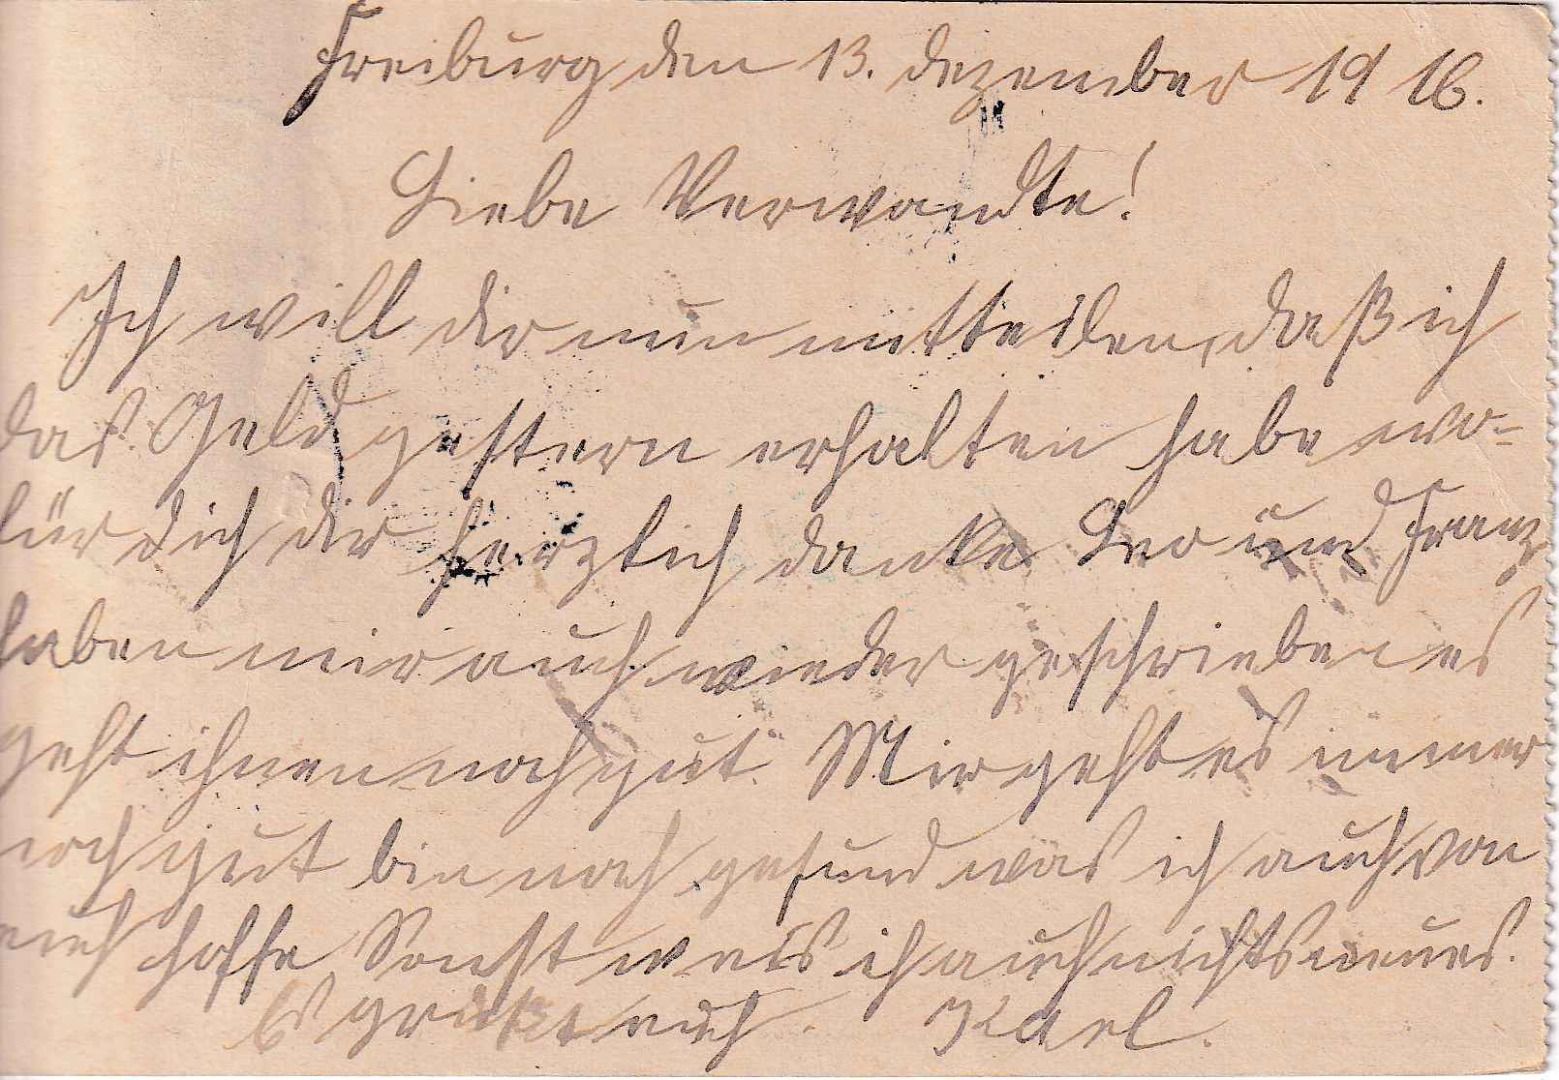 Freiburg den 13. Dezember 1916.
Liebe Verwandte!
Ich will dir nun mitteilen, daß ich
das Geld gestern erhalten habe wo-
für dich dir herzlich danke Leo und Franz
haben mir auch wieder geschrieben es
geht ihnen noch gut. Mir geht es immer
noch gut bin noch gesund was ich auch von
euch hoffe. Sonst weis ich auch nichts neues.
Es grüßt euch. Karl.